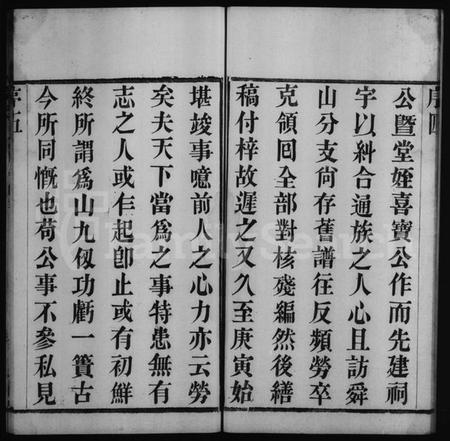 公暨堂姪喜寶公作而先建祠
宇以糾合通族之人心且訪舜
山分支尙存舊譜往反頻勞卒
克領回全部對核殘編然後繕
稿付梓故遲之又久至庚寅始
堪竣事噫前人之心力亦云勞
矣夫天下當爲之事特患無有
志之人或乍起卽止或有初鮮
終所謂爲山九仞功虧一簣古
今所同慨也苟公事不參私見
序五